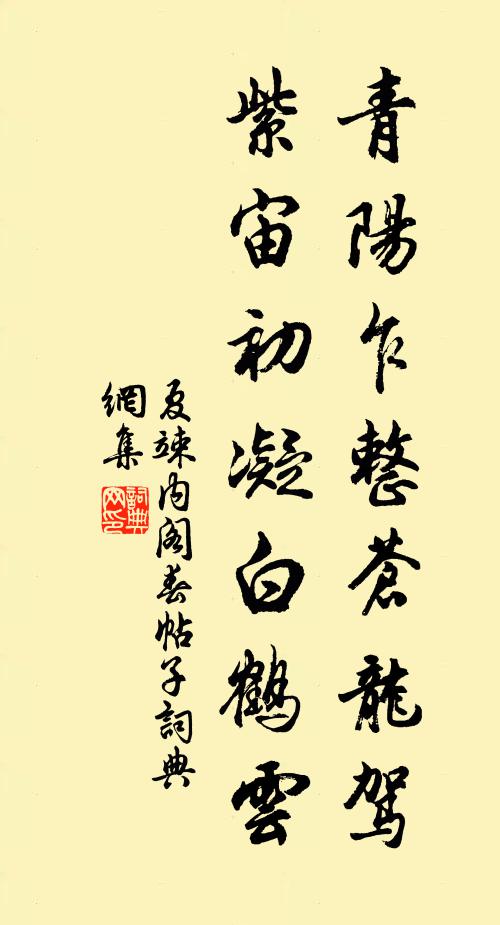 青陽乍整蒼龍駕
紫宙初凝白鶴雲
夏竦内阁春帖子詞典
網集
詞典
网印